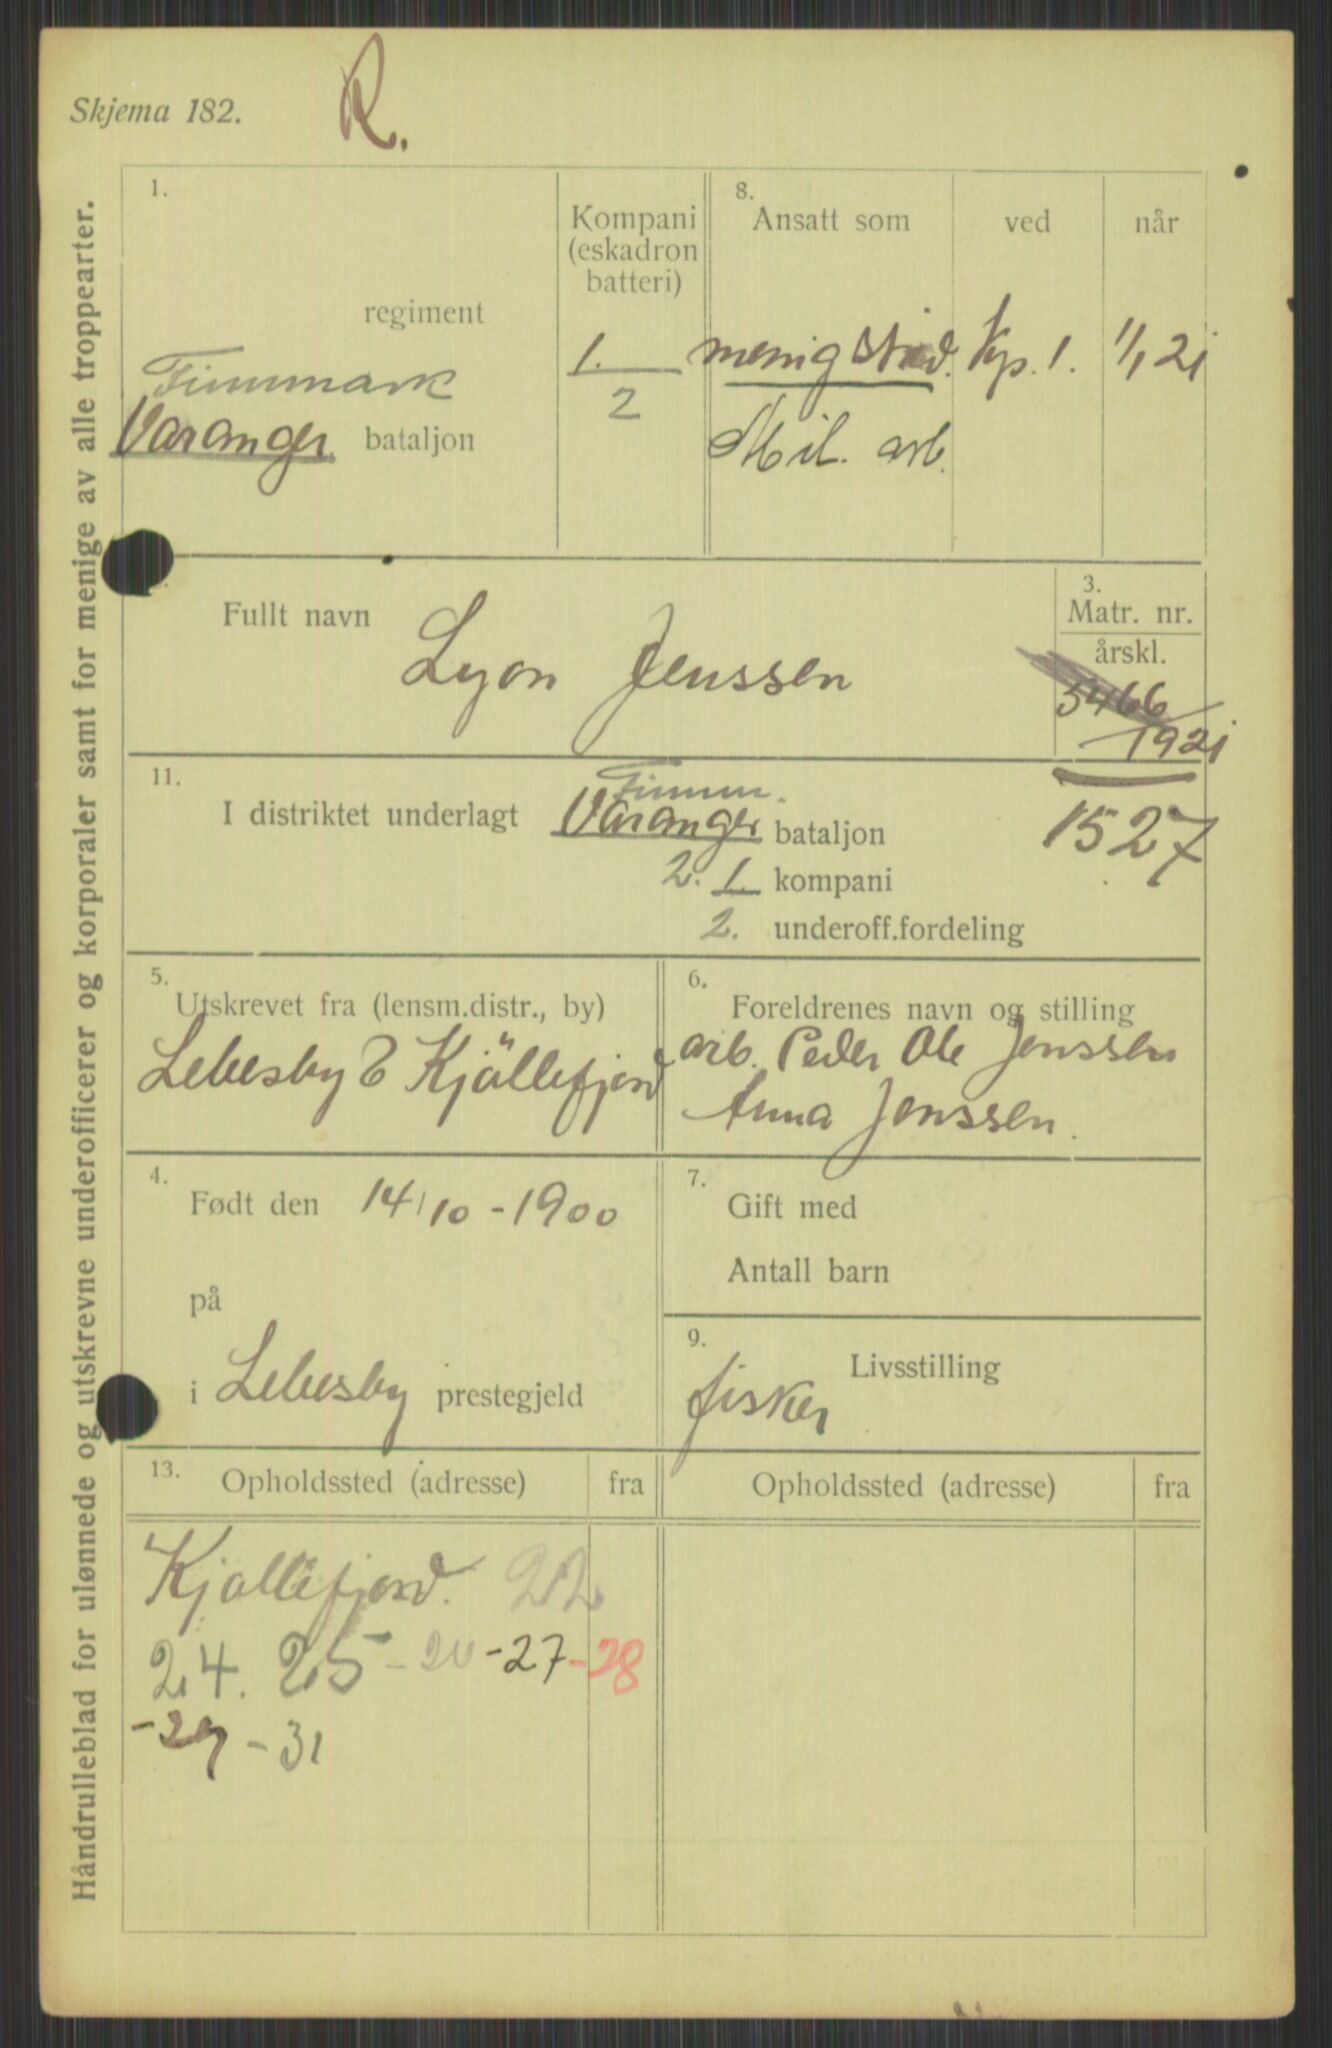 Skjema 182.
R.
Håndrulleblad for ulønnede og utskrevne underofficerer og korporaler samt for menige av alle troppearter.
1.
regiment
Finnmark
Varanger bataljon
Kompani
(eskadron
batteri)
1.
2
8.
Ansatt som
ved
når
menig Kp. 1. 1/1 21
Mil. arb.
Fullt navn
Lyon Jenssen
3.
Matr. nr.
årskl.
5466
1921
1527
11.
Finnm.
I distriktet underlagt Varanger bataljon
2. 1. kompani
2. underoff.fordeling
5.
Utskrevet fra (lensm.distr., by)
Lebesby & Kjöllefjord
6.
Foreldrenes navn og stilling
arb. Peder Ole Jenssen
Anna Jenssen.
4.
Født den 14/10 - 1900
på
i Lebesby prestegjeld
7.
Gift med
Antall barn
9.
Livsstilling
fisker
13.
Opholdssted (adresse) fra
Opholdssted (adresse) fra
Kjøllefjord. 22
24. 25 - 27 - 28
- 29 - 31